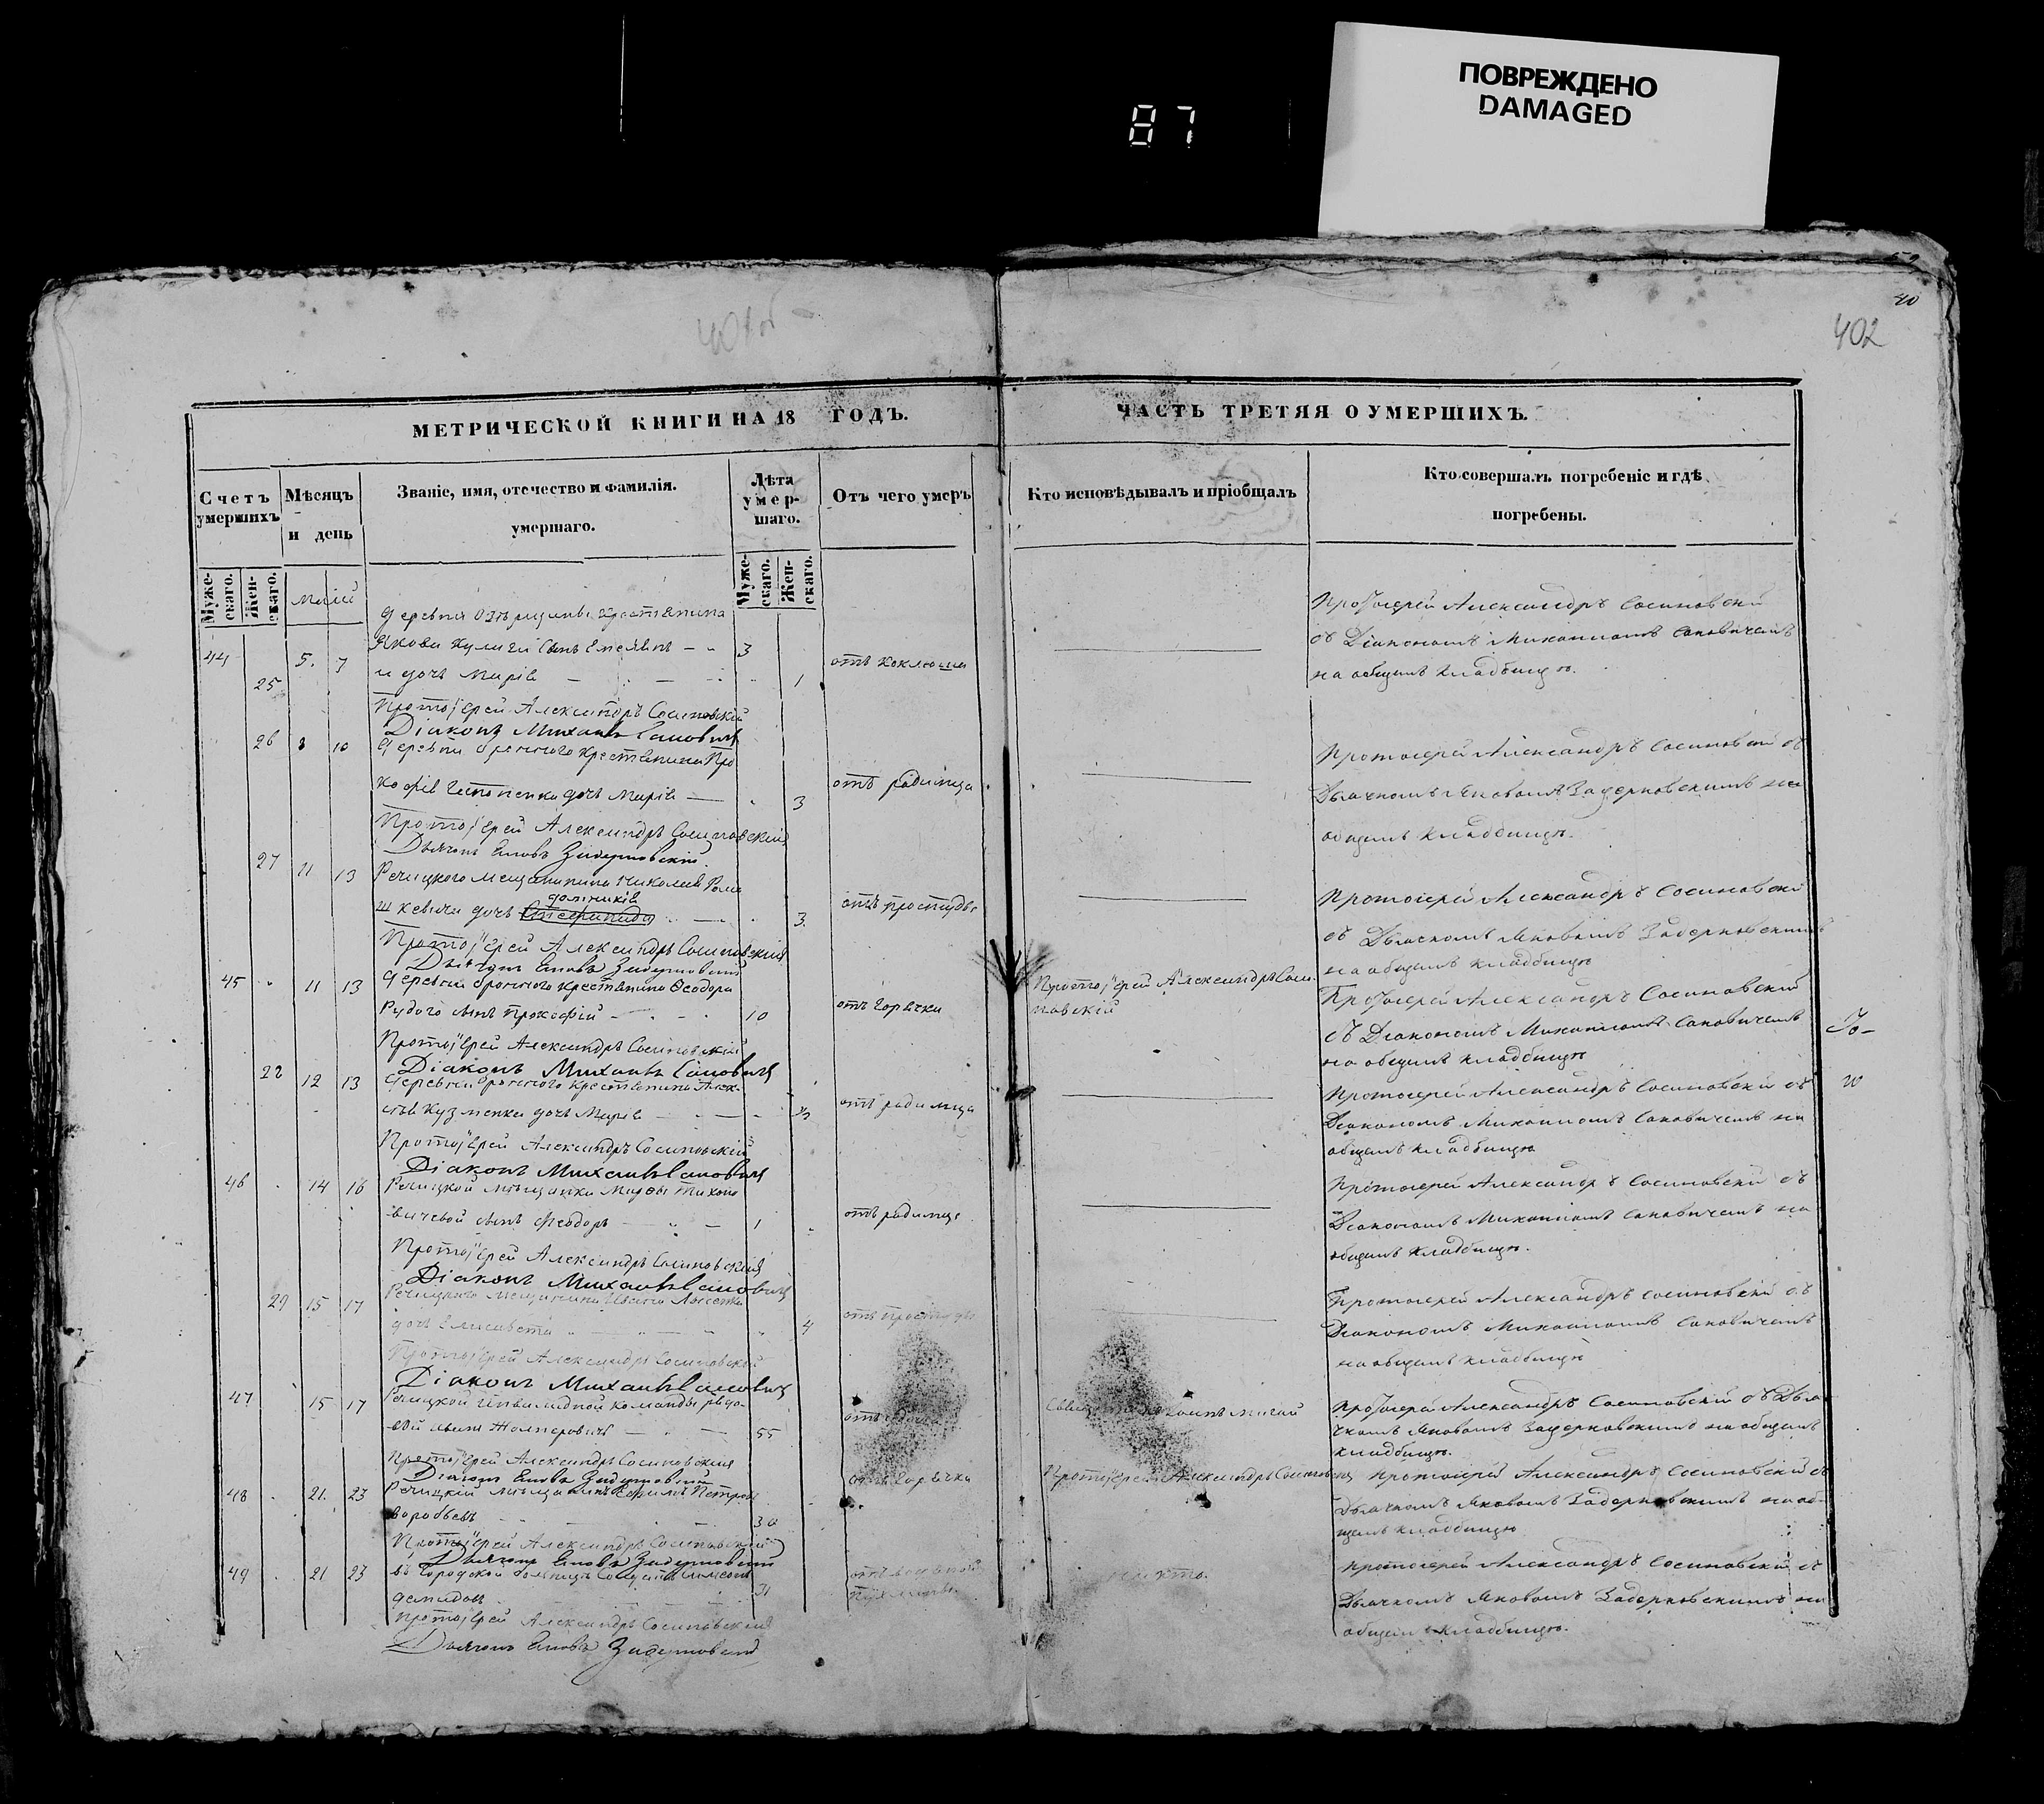 ПОВРЕЖДЕНО
DAMAGED
87
40
402
МЕТРИЧЕСКОЙ КНИГИ НА 18 ГОДЪ.
Счетъ умершихъ
Мѣсяцъ и день
Званіе, имя, отечество и фамилія. умершаго.
Лѣта умер-шаго.
Отъ чего умеръ
Муже-скаго.
Жен-скаго.
Муже-скаго.
Жен-скаго.
Маій
крестьянина
44 5. 7 Якова сынъ 3
отъ коклюша
25 и дочь Марія 1
Протоіерей Александръ Сосиновскій
Діаконъ Михаилъ Сановичъ
26 8 10 Деревни крестьянина Про
кофія дочь Марія 3
отъ родимца
Протоіерей Александръ Сосиновскій
Дьячокъ Яковъ Задерновскій
27 11 13 Речицкого мещанина Николая Рома
шкевича дочь 3.
отъ простуды
Протоіерей Александръ Сосиновскій
Дьячокъ Яковъ Задерновскій
45 11 13 Деревни крестьянина Ѳеодора
Рудого сынъ Прокофій 10
отъ горячки
Протоіерей Александръ Сосиновскій
Діаконъ Михаилъ Сановичъ
28 12 13 Деревни крестьянина Алек-
сѣя Кузменка дочь Марія
отъ родимца
Протоіерей Александръ Сосиновскій
Діаконъ Михаилъ Сановичъ
46 14 16 Речицкой мѣщанки Тихоно
вичевой сынъ Феодоръ 1
отъ родимца
Протоіерей Александръ Сосиновскій
Діаконъ Михаилъ Сановичъ
29 15 17 Речицкаго мещанина
дочь Елисавета 4
отъ простуды
Протоіерей Александръ Сосиновской
Діаконъ Михаилъ Сановичъ
47 15 17 Речицкой инвалидной команды рядо-
вой 55
Протоіерей Александръ Сосиновскій
Дьячокъ Яковъ Задерновскій
48 21. 23 Речицкій мѣщанинъ Петровъ
Воробьевъ 30
отъ горячки
Протоіерей Александръ Сосиновскій
Дьячокъ Яковъ Задерновскій
49 21 23 въ городской
31
Протоіерей Александръ Сосиновскій
Дьячокъ Яковъ Задерновскій
ЧАСТЬ ТРЕТЯЯ О УМЕРШИХЪ.
Кто исповѣдывалъ и пріобщалъ
Кто совершалъ погребеніе и гдѣ погребены.
Протоіерей Александръ Сосиновскій
съ Діакономъ Михаиломъ Сановичемъ
на общемъ кладбищѣ.
Протоіерей Александръ Сосиновскій съ
Дьячкомъ Яковомъ Задерновскимъ на
общемъ кладбищѣ.
Протоіерей Александръ Сосиновскій
съ Дьячкомъ Яковомъ Задерновскимъ
на общемъ кладбищѣ
Протоіерей Александръ Соси-
новскій
Протоіерей Александръ Сосиновскій
съ Діакономъ Михаиломъ Сановичемъ
на общемъ кладбищѣ
Протоіерей Александръ Сосиновскій съ
Діакономъ Михаиломъ Сановичемъ на
общемъ кладбищѣ
Протоіерей Александръ Сосиновскій съ
Діакономъ Михаиломъ Сановичемъ на
общемъ кладбищѣ.
Протоіерей Александръ Сосиновскій съ
Діакономъ Михаиломъ Сановичемъ
на общемъ кладбищѣ
Протоіерей Александръ Сосиновскій съ Дья-
чкомъ Яковомъ Задерновскимъ на общемъ
кладбищѣ.
Протоіерей Александръ Сосиновскій
Протоіерей Александръ Сосиновскій съ
Дьячкомъ Яковомъ Задерновскимъ на об-
щемъ кладбищѣ
никто.
Протоіерей Александръ Сосиновскій съ
Дьячкомъ Яковомъ Задерновскимъ на
общемъ кладбищѣ.